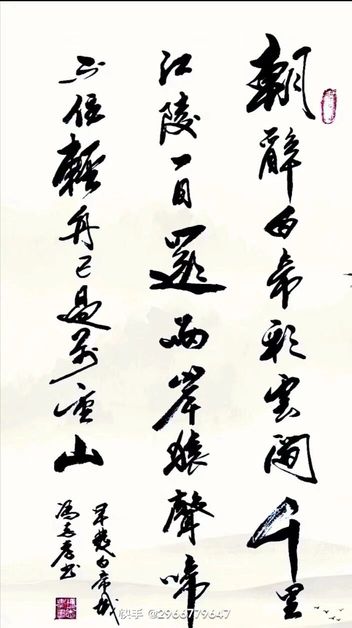 朝辭白帝彩雲間千里
江陵一日還兩岸猿聲啼
不住輕舟已過萬重山
早發白帝城
快手 @2966779647